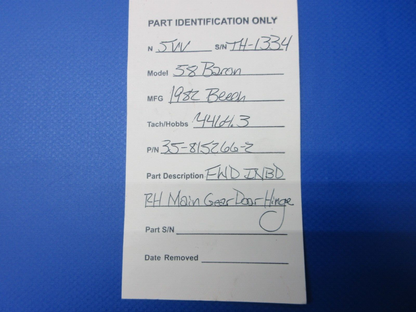 PART IDENTIFICATION ONLY
N 5VV S/N TH-1334
Model 58 Baron
MFG 1982 Beech
Tach/Hobbs 4464.3
P/N 35-815266-2
Part Description FWD INBD
RH Main Gear Door Hinge
Part S/N
Date Removed